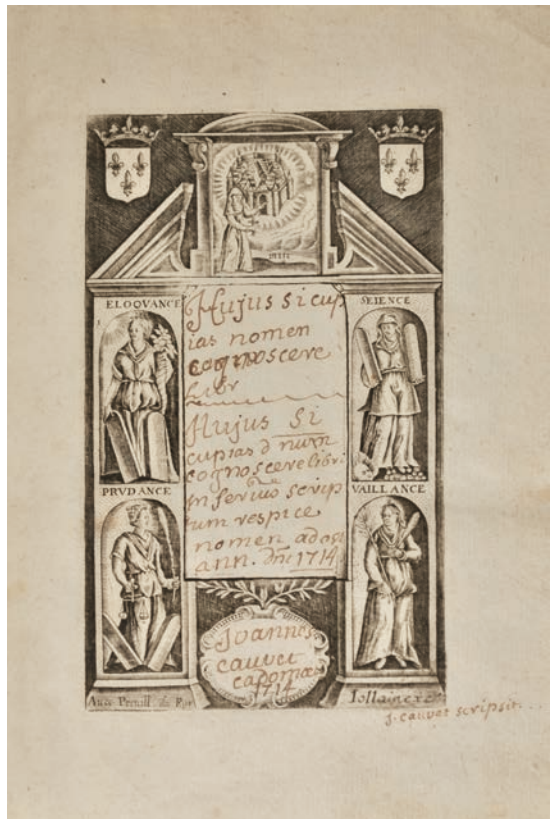 ELOQVANCE
SEIENCE
Hujus si cup
ias nomen
cognoscere
Libr
Hujus si
cupias d num
cognoscere libri
inferius scrip
tum respice
nomen
ann. dni 1714
PRVDANCE
VAILLANCE
Joannes
cauvet
1714
Avec Privill. du Roy
Jollain ex
J. cauvet scripsit